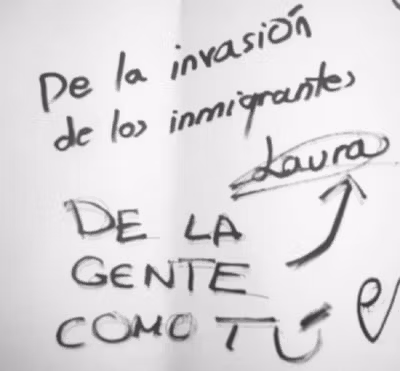 De la invasión
de los inmigrantes
Laura
DE LA
GENTE
COMO TÚ